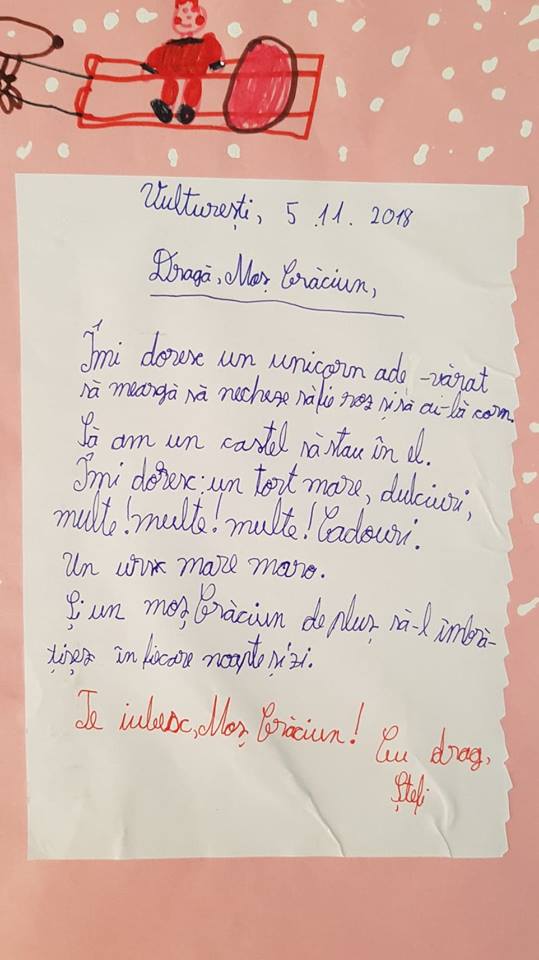 Vulturești, 5.11.2018
Dragă, Moș Crăciun,
Îmi doresc un unicorn ade-vărat
să meargă să necheze să fie roz și să ai-bă corn.
Să am un castel să stau în el.
Îmi doresc: un tort mare, dulciuri,
multe! multe! multe! Cadouri.
Un urs mare maro.
Și un moș Crăciun de pluș să-l îmbră-
țișez în fiecare noapte și zi.
Te iubesc, Moș Crăciun! Cu drag,
Ștefi